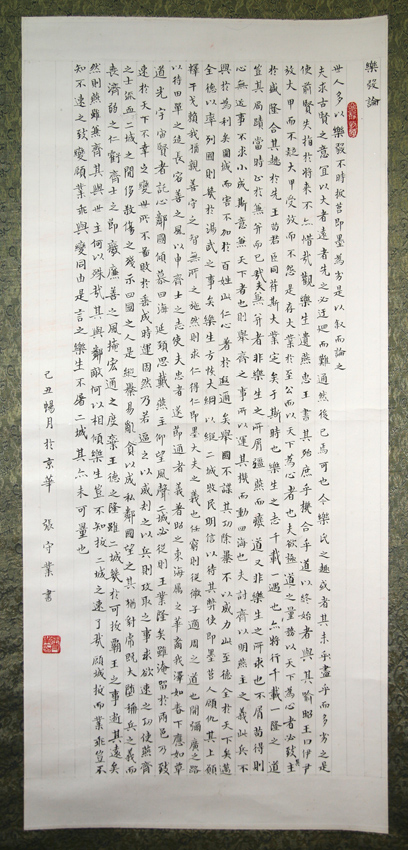 樂毅論
世人多以樂毅不時拔莒即墨為劣是以叙而論之
夫求古賢之意宜以大者遠者先之必迂迴而難通然後已焉可也今樂氏之趣或者其未盡乎而多劣之是
使前賢失指於將來不亦惜哉觀樂生遺燕惠王書其殆庶乎機合乎道以終始者與其喻昭王曰伊尹
放大甲而不疑大甲受放而不怨是存大業於至公而以天下為心者也夫欲極道之量務以天下為心者必致其主
於盛隆合其趣於先王苟君臣同符斯大業定矣于斯時也樂生之志千載一遇也亦將行千載一隆之道
豈其局蹟當時止於兼并而已哉夫兼并者非樂生之所屑彊燕而廢道又非樂生之所求也不屑苟得則
心無近事不求小成斯意兼天下者也則舉齊之事所以運其機而動四海也夫討齊以明燕主之義此兵不
興於為利矣圍城而害不加於百姓此仁心著於遐邇矣舉國不謀其功除暴不以威力此至德全於天下矣邁
全德以率列國則幾於湯武之事矣樂生方恢大綱以縱二城收民明信以待其弊使即墨莒人顧仇其上願
釋干戈賴我猶親善守之智無所之施然則求仁得仁即墨大夫之義也任窮則從微子適周之道也開彌廣之路
以待田單之徒長容善之風以申齊士之志使夫忠者遂節通者義著昭之東海屬之華裔我澤如春下應如草
道光宇宙賢者託心鄰國傾慕四海延頸思戴燕主仰望風聲二城必從則王業隆矣雖淹留於兩邑乃致
速於天下不幸之變世所不圖敗於垂成時運固然乃若逼之以威劫之以兵則攻取之事求欲速之功使燕齊
之士流血二城之間侈殺傷之殘示四國之人是縱暴易亂貪以成私鄰國望之其猶豺虎既大墮稱兵之義而
喪濟弱之仁虧齊士之節廢廉善之風掩宏通之度棄王德之隆雖二城幾於可拔霸王之事逝其遠矣
然則燕雖兼齊其與世主何以殊哉其與鄰敵何以相傾樂生豈不知拔二城之速了哉顧城拔而業乖豈不
知不速之致變顧業乖與變同由是言之樂生不屠二城其亦未可量也
己丑暢月於京華 張守業書